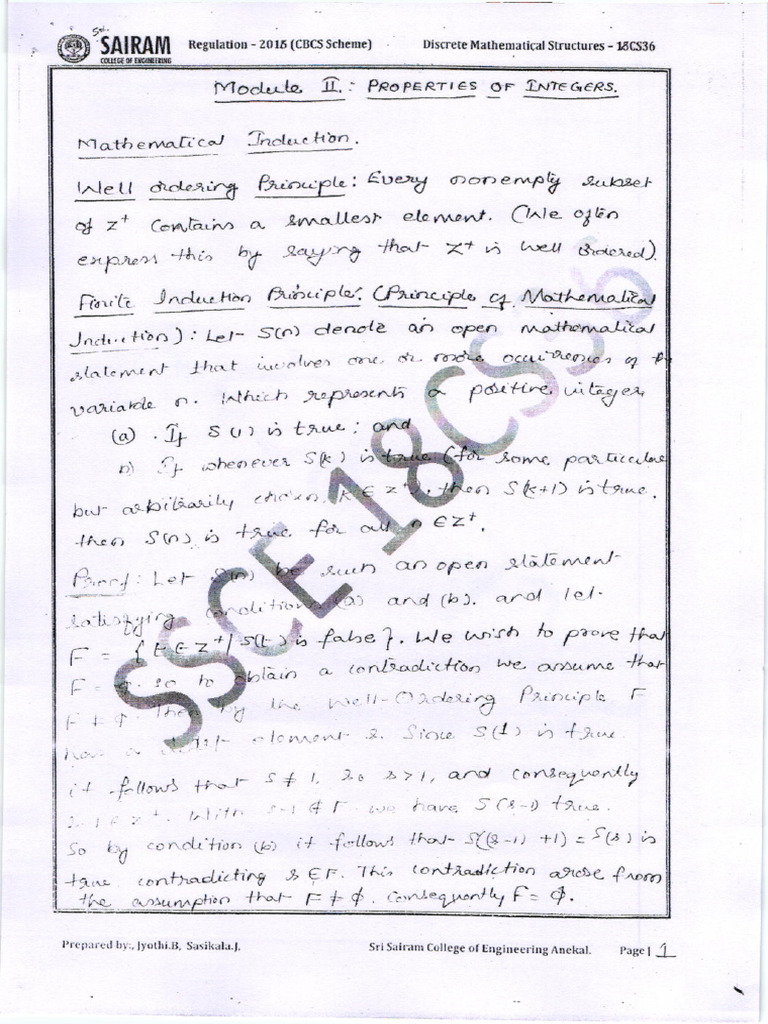 Sri
SAIRAM
COLLEGE OF ENGINEERING
Regulation – 2018 (CBCS Scheme)
Discrete Mathematical Structures – 18CS36
Module II : PROPERTIES OF INTEGERS.
Mathematical Induction.
Well ordering Principle: Every nonempty subset
of Z+ contains a smallest element. (We often
express this by saying that Z+ is well ordered).
Finite Induction Principle: (Principle of Mathematical
Induction): Let S(n) denote an open mathematical
statement that involves one or more occurrences of
variable n. Which represents a positive integer
(a) . If S(1) is true ; and
b) If whenever S(k) is true (for some particular
but arbitrarily chosen, k ∈ Z+), then S(k+1) is true.
then S(n) is true for all n ∈ Z+.
Proof: Let S(n) be such an open statement
satisfying conditions (a) and (b). and let
F = {t ∈ Z+ / S(t) is false}. We wish to prove that
F = φ so to obtain a contradiction we assume that
F ≠ φ. Then by the Well-Ordering Principle F
has a least element s. Since S(1) is true.
it follows that s ≠ 1, so s>1, and consequently
s-1 ∈ Z+. With s-1 ∉ F we have S(s-1) true.
So by condition (b) it follows that S((s-1) +1) = S(s) is
true contradicting s ∈ F. This contradiction arose from
the assumption that F ≠ φ. Consequently F = φ.
SSCE 18CS36
Prepared by:, Jyothi.B, Sasikala.J.
Sri Sairam College of Engineering Anekal.
Page | 1